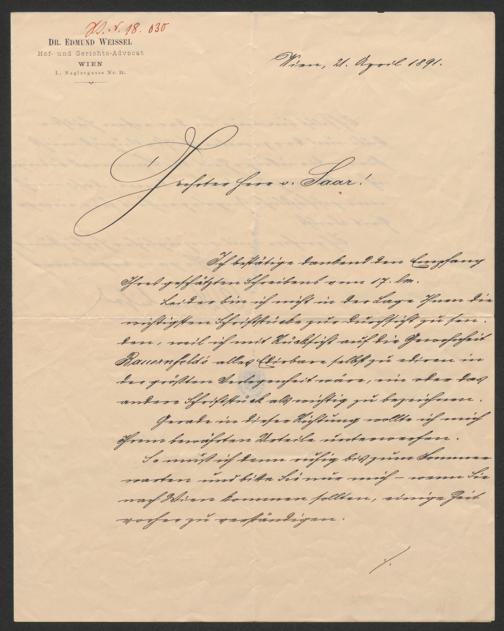 H.I.N. 48.030
DR. EDMUND WEISSEL
Hof- und Gerichts-Advocat
WIEN
I., Naglergasse Nr.
Wien, 21. April 1891.
Geehrter Herr v. Saar!
Ich bestätige dankend den Empfang
Ihres geschätzten Schreibens vom 17. l.M.
Leider bin ich nicht in der Lage Ihnen die
wichtigsten Schriftstücke zur Durchsicht zu sen-
den, weil ich mit Rücksicht auf die Gewohnheit
Bauernfeld's alles Edirbare selbst zu ediren in
der größten Verlegenheit wäre, ein oder das
andere Schriftstück als wichtig zu bezeichnen.
Gerade in dieser Richtung wollte ich mich
Ihrem bewährten Urteile unterwerfen.
So muß ich denn ruhig bis zum Sommer
warten und bitte Sie nur mich – wenn Sie
nach Wien kommen sollten, einige Zeit
vorher zu verständigen.